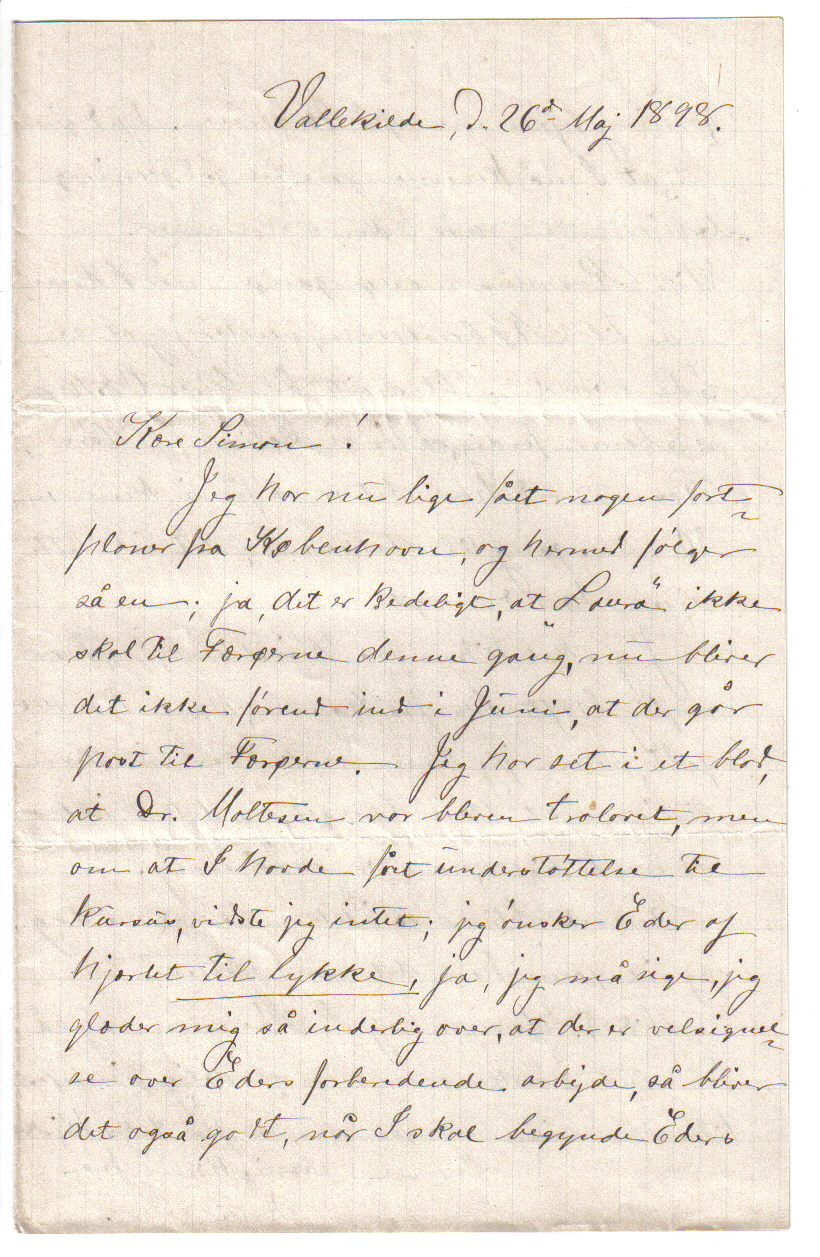 Vallekilde, d. 26d Maj 1898.
Kære Simon!
Jeg har nu lige fået nogen fart-
planer fra København, og hermed følger
så en; ja, det er kedeligt, at "Laura" ikke
skal til Færøerne denne gang, nu bliver
det ikke førend ind i Juni, at der går
post til Færøerne. Jeg har set i et blad,
at Dr. Moltesen var bleven trolovet, men
om at I havde fået understøttelse til
kursus, vidste jeg intet; jeg ønsker Eder af
hjertet til lykke, ja, jeg må sige, jeg
glæder mig så inderlig over, at der er velsignel-
se over Eders forberedende arbejde, så bliver
det også godt, når I skal begynde Eders